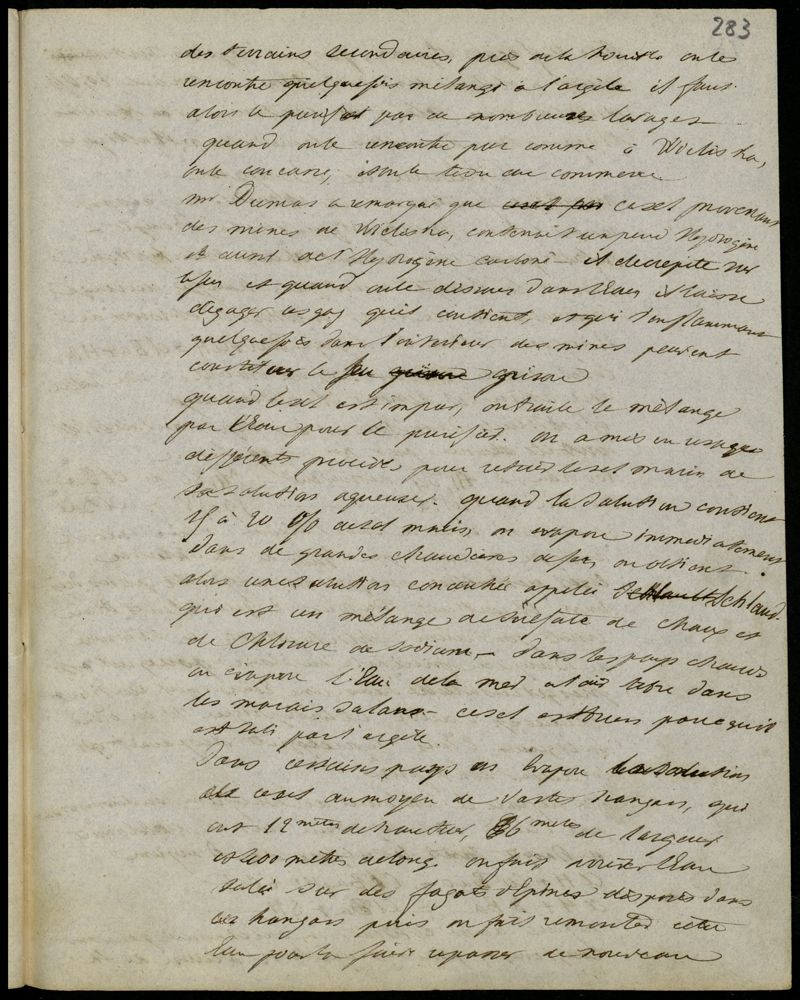 283
des terrains secondaires, près de la houille on le
rencontre quelquefois mélangé à l'argile il faut
alors le purifier par de nombreuses lavages
quand on le rencontre pur comme à Wieliska,
on le concasse, et on le livre au commerce
mr Dumas a remarqué que ce sel provenant
des mines de Wieliska, contenait un peu d'Hydrogène
et aussi de l'Hydrogène carboné - il décrépite sur
le feu et quand on le dissous dans l'Eau il laisse
dégager ces gaz qu'il contient, et qui s'enflammant
quelquefois dans l'intérieur des mines peuvent
constituer le feu grisou grisou
quand le sel est impur, on traite le mélange
par l'Eau pour le purifier. on a mis en usage
différents procédés pour retirer le sel marin de
sa solution aqueuse. quand la solution contient
15 à 20 % de sel marin, on évapore immédiatement
dans de grandes chaudières de fer, on obtient
alors une solution concentrée appelée Schlaud-
qui est un mélange de sulfate de chaux et
de Chlorure de sodium - dans les pays chauds
on évapore l'Eau de la mer à l'air libre dans
les marais salans - ce sel est brun parce qu'il
est sali par l'argile.
Dans certains pays on évapore la solution
de ce sel au moyen de vastes hangars, qui
ont 12 mètres de hauteur, 6 metres de largeur
et 400 mètres de long. on fait arriver l'Eau
salée sur des fagots d'épines disposés dans
ces hangars puis on fait remonter cette
Eau pour la faire repasser de nouveau